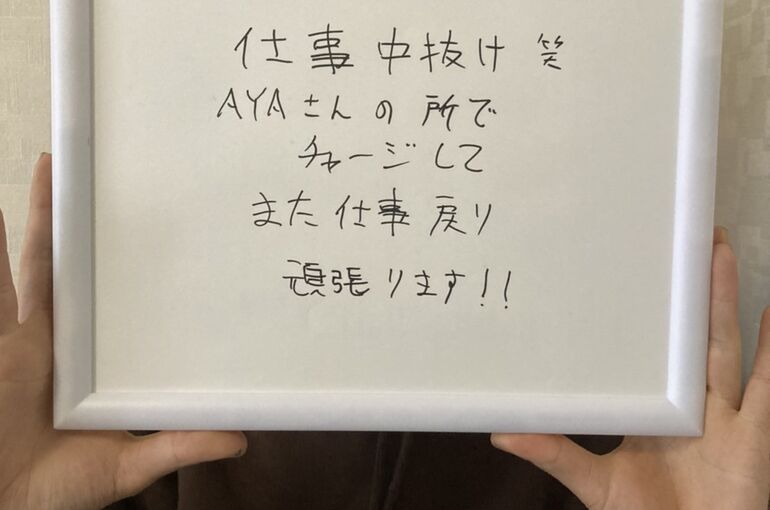 仕事中抜け 笑
AYAさんの所で
チャージして
また仕事戻り
頑張ります!!